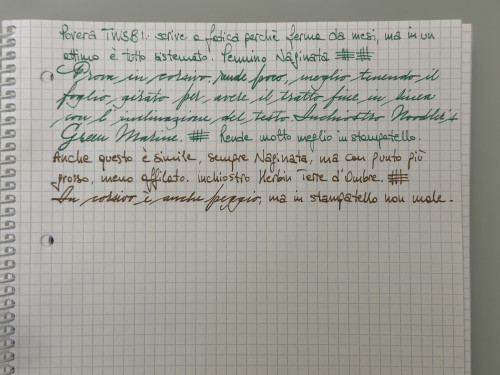 Povera TWSBI. scrive a fatica perchè ferma da mesi, ma in un
attimo è tutto sistemato. Pennino Naginata
Prova in corsivo, rende poco, meglio tenendo il
foglio girato per avere il tratto fine in linea
con l'inclinazione del testo. Inchiostro Noodler's
Green Marine. Rende molto meglio in stampatello.
Anche questo è simile, sempre Naginata, ma con punto più
grosso, meno affilato. inchiostro Herbin Terre d'Ombre.
In corsivo è anche peggio, ma in stampatello non male.